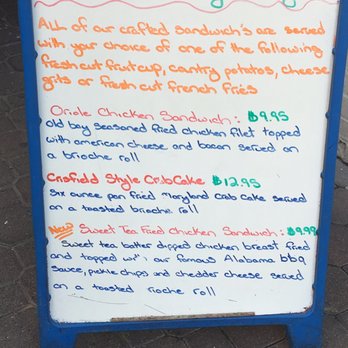 All of our crafted sandwich's are served
with your choice of one of the following
fresh cut fruit cup, cantry potatos, cheese
grits or fresh cut french fries
Oriole Chicken Sandwich: $9.95
old bay seasoned fried chicken filet topped
with american cheese and bacon served on
a brioche roll
Crisfield Style CrabCake $12.95
Six ounce pan fried Maryland Crab Cake served
on a toasted brioche roll
New Sweet Tea Fried Chicken Sandwich: $9.99
Sweet tea batter dipped chicken breast fried
and topped our famous Alabama bbq
Sauce, pickle chips and chedder cheese served
on a toasted rioche roll